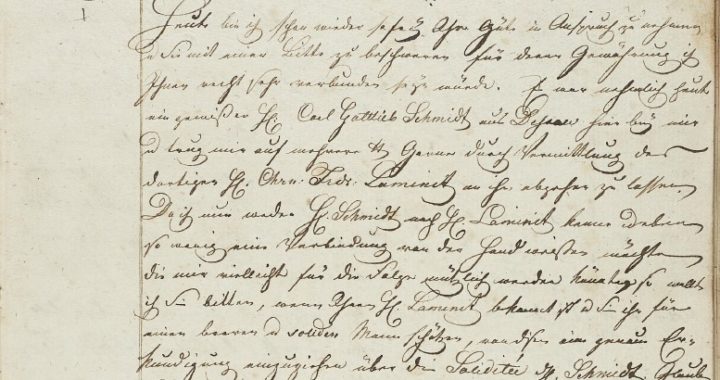 Heute bin ich schon wieder so frei Ihre Güte in Anspruch zu nehmen
u Sie mit einer Bitte zu beschweren für deren Gewährung ich
Ihnen recht sehr verbunden seyn würde. Es war nehmlich heute
ein gewißer H. Carl Gottlieb Schmidt aus Dessau hier bey mir
u trug mir auf mehrere Garne durch Vermittlung des
dortigen H. Chrn. Frdr. Laminit an ihn abgehen zu lassen,
Da ich nun weder H. Schmidt noch H. Laminit kenne u eben
so wenig eine Verbindung von der Hand weisen möchte
die mir vielleicht für die Folge nützlich werden könnte, so wollt
ich Sie bitten, wenn Ihnen H. Laminit bekannt ist u Sie ihn für
einen braven u soliden Mann schätzen, von diesem eine genaue Er-
kundigung einzuziehen über die Solidité H. Schmidt. Glaubt